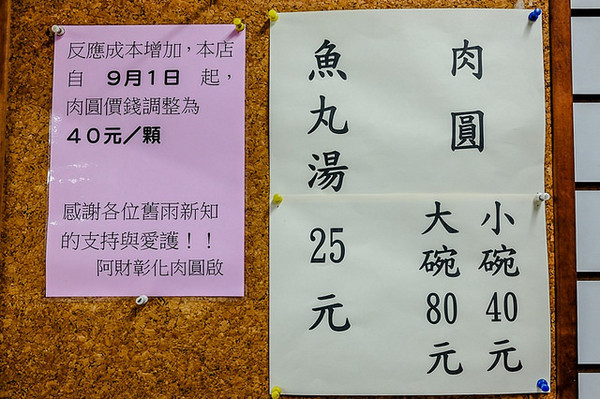 反應成本增加，本店
自 9月1日 起，
肉圓價錢調整為
40元／顆
感謝各位舊雨新知
的支持與愛護！！
阿財彰化肉圓啟
肉圓
小碗40元
大碗80元
魚丸湯 25元